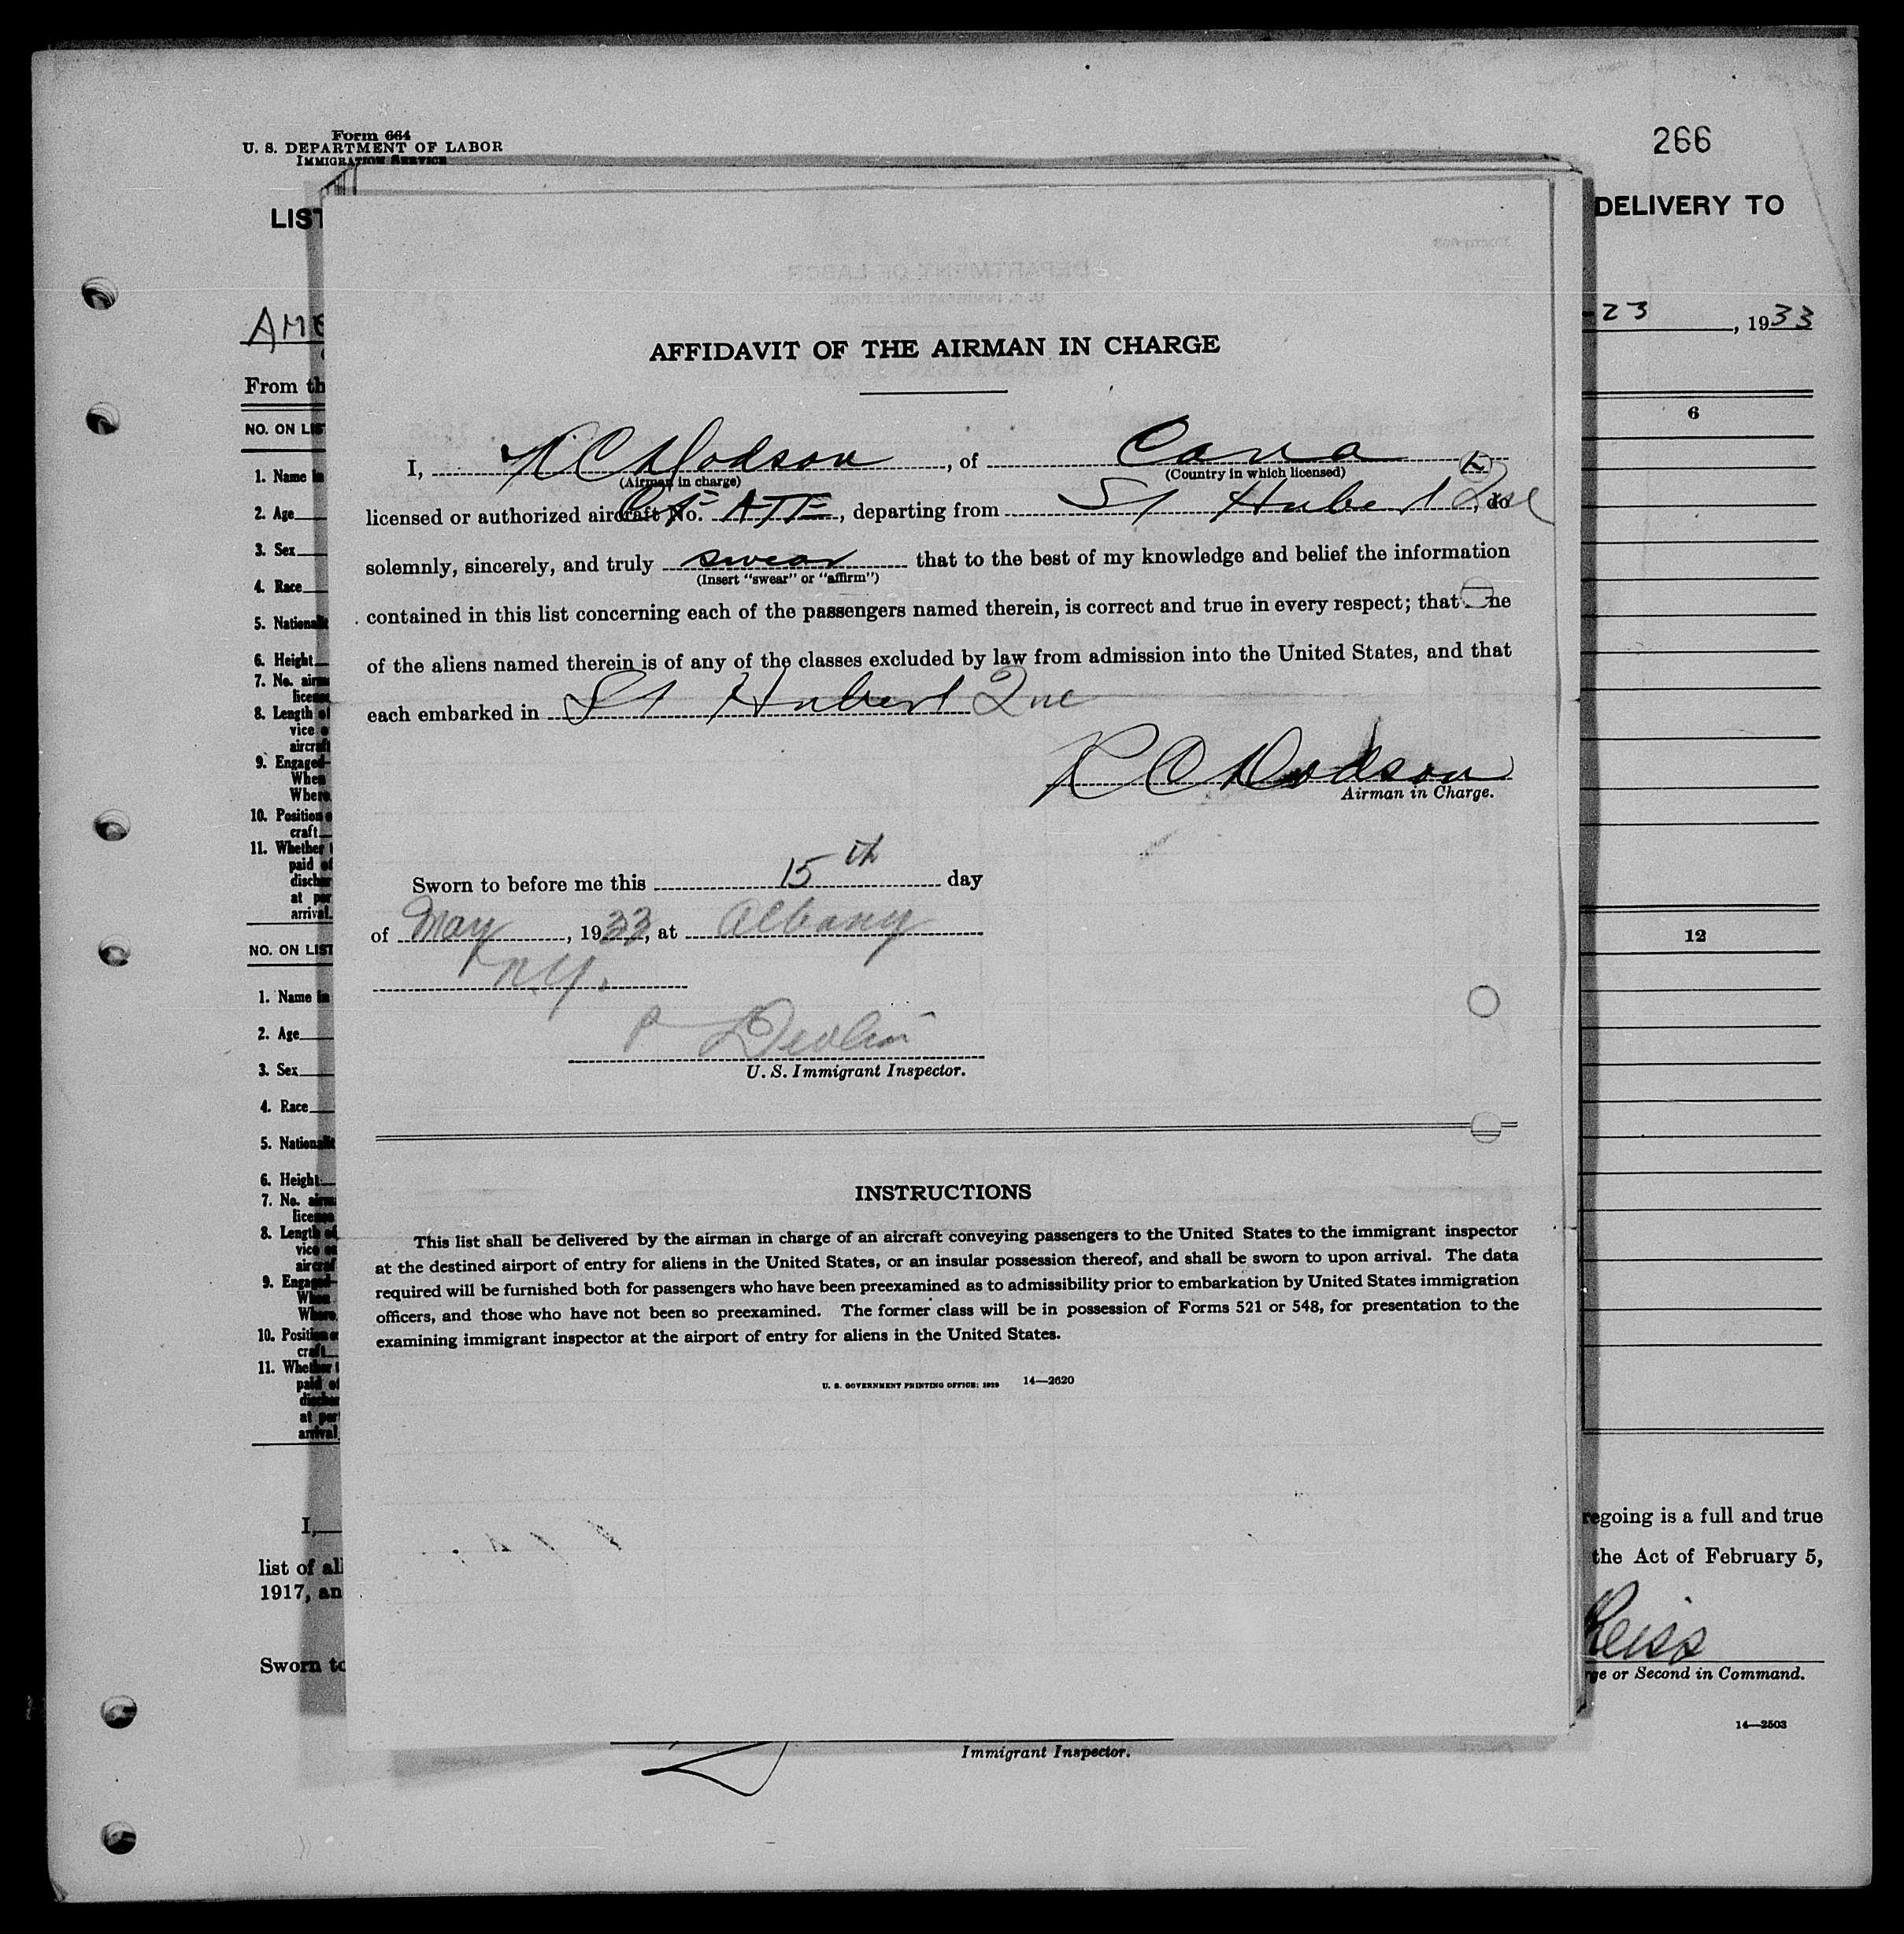 Form 664
U. S. DEPARTMENT OF LABOR
IMMIGRATION SERVICE
266
LIST
DELIVERY TO
AME
23, 1933
From th
NO. ON LIST
6
1. Name in
2. Age
3. Sex
4. Race
5. Nationalit
6. Height
7. No. airm
license
8. Length of
vice o
aircraft
9. Engaged—
When
Where
10. Position o
craft
11. Whether
paid of
dischar
at por
arrival.
NO. ON LIST
12
1. Name in
2. Age
3. Sex
4. Race
5. Nationalit
6. Height
7. No. airm
license
8. Length of
vice on
aircraf
9. Engaged—
When
Where
10. Position o
craft
11. Whether
paid of
dischar
at por
arrival
I,
regoing is a full and true
list of all
the Act of February 5,
1917, an
Reiss
Sworn to
rge or Second in Command.
14—2503
Immigrant Inspector.
AFFIDAVIT OF THE AIRMAN IN CHARGE
I, R C Dodson, of Cana
(Airman in charge) (Country in which licensed)
licensed or authorized aircraft No. CF-ATF, departing from St Hubert Que, do
solemnly, sincerely, and truly swear that to the best of my knowledge and belief the information
(Insert "swear" or "affirm")
contained in this list concerning each of the passengers named therein, is correct and true in every respect; that ne
of the aliens named therein is of any of the classes excluded by law from admission into the United States, and that
each embarked in St Hubert Que
R C Dodson
Airman in Charge.
Sworn to before me this 15th day
of May, 1933, at Albany
N.Y.
P Devlin
U. S. Immigrant Inspector.
INSTRUCTIONS
This list shall be delivered by the airman in charge of an aircraft conveying passengers to the United States to the immigrant inspector
at the destined airport of entry for aliens in the United States, or an insular possession thereof, and shall be sworn to upon arrival. The data
required will be furnished both for passengers who have been preexamined as to admissibility prior to embarkation by United States immigration
officers, and those who have not been so preexamined. The former class will be in possession of Forms 521 or 548, for presentation to the
examining immigrant inspector at the airport of entry for aliens in the United States.
U. S. GOVERNMENT PRINTING OFFICE: 1929 14—2620